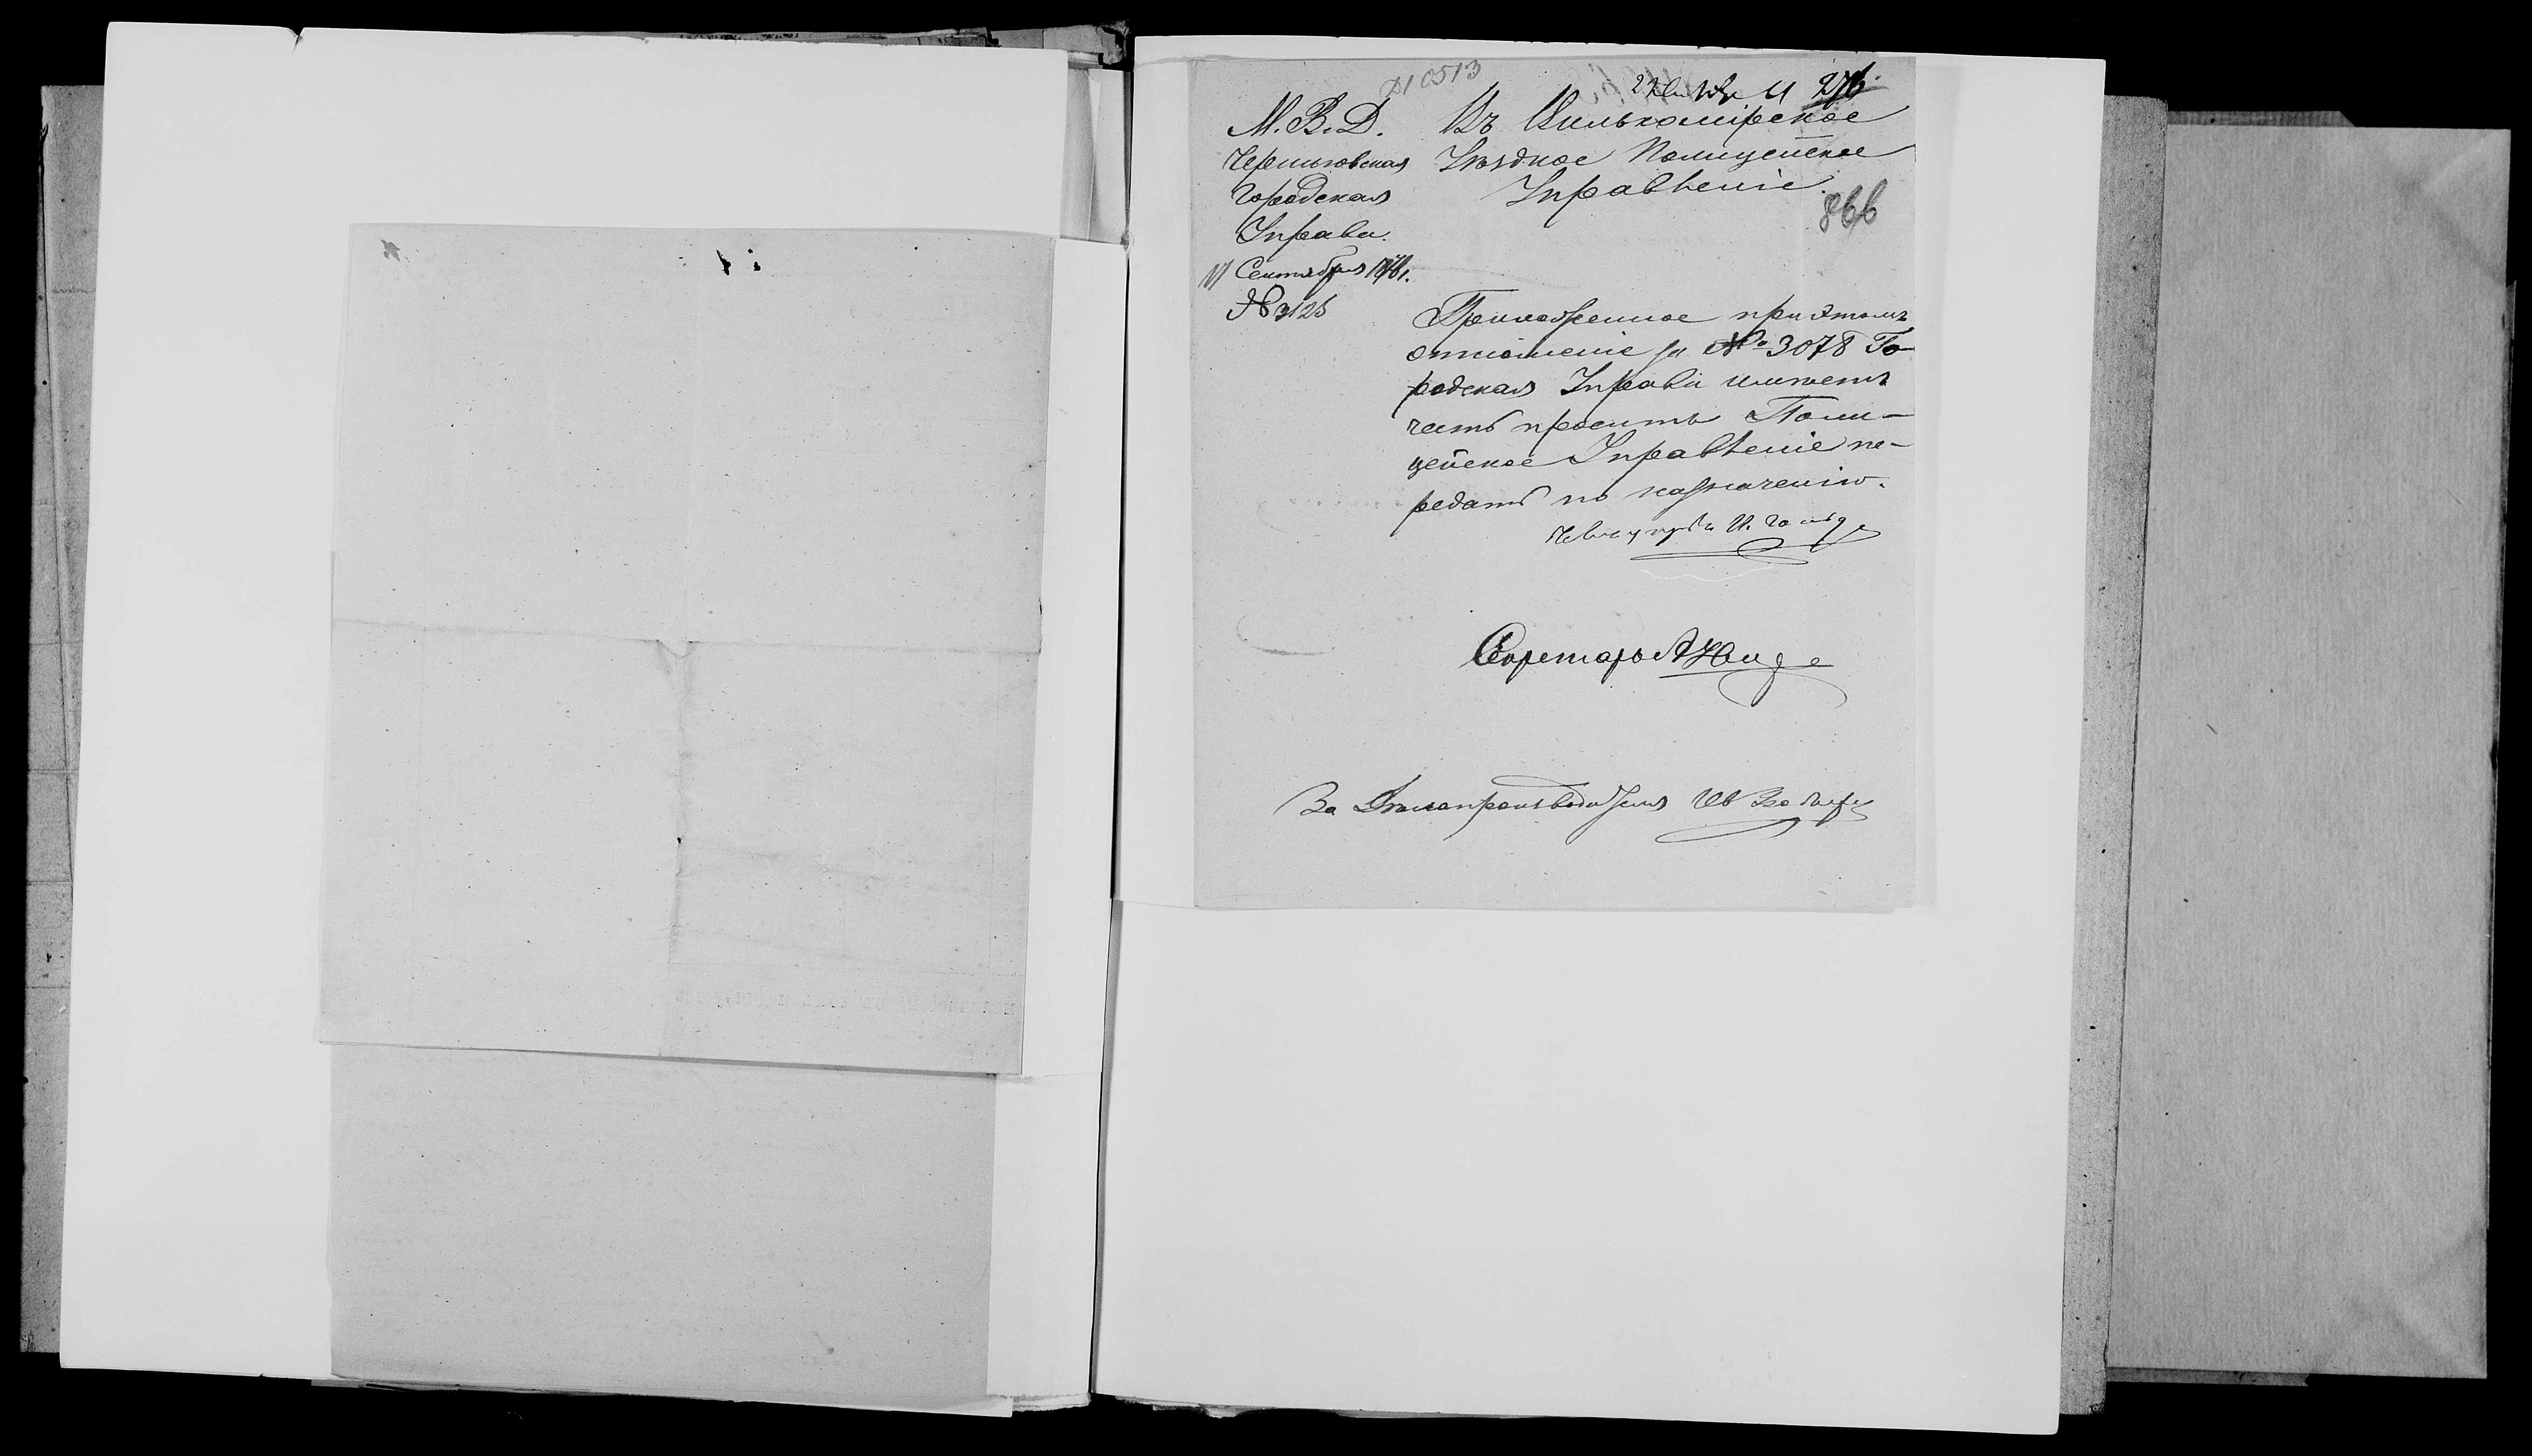 10513
М. В. Д.
Черниговская
Городская
Управа.
17 Сентября 1876 г.
№ 3125
276
Въ Вилькомірское
Уѣздное Полицейское
Управленіе.
866
Препровождая при этомъ
отношеніе за № 3078 Го-
родская Управа имѣетъ
честь просить Поли-
цейское Управленіе пе-
редать по назначенію.
Секретарь
За Дѣлопроизводителя